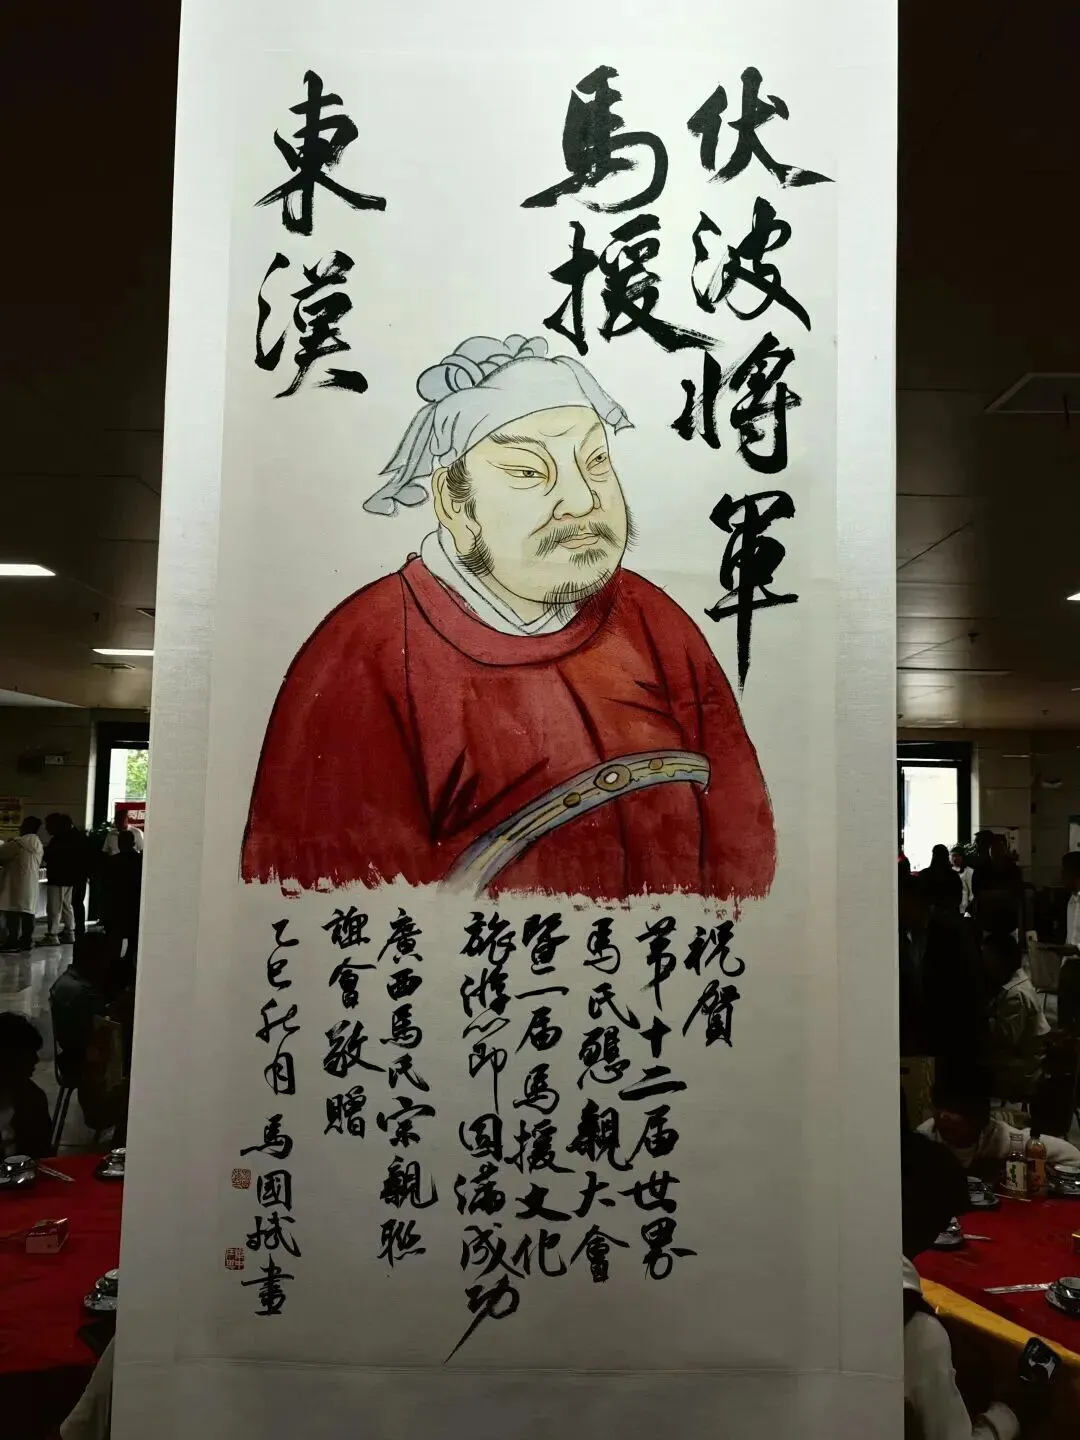 伏波將軍
馬援
東漢
祝賀
第十二届世界
馬氏懇親大會
暨一届馬援文化
旅游節圆滿成功
廣西馬氏宗親聯
誼會敬贈
乙巳秋月 馬國斌畫